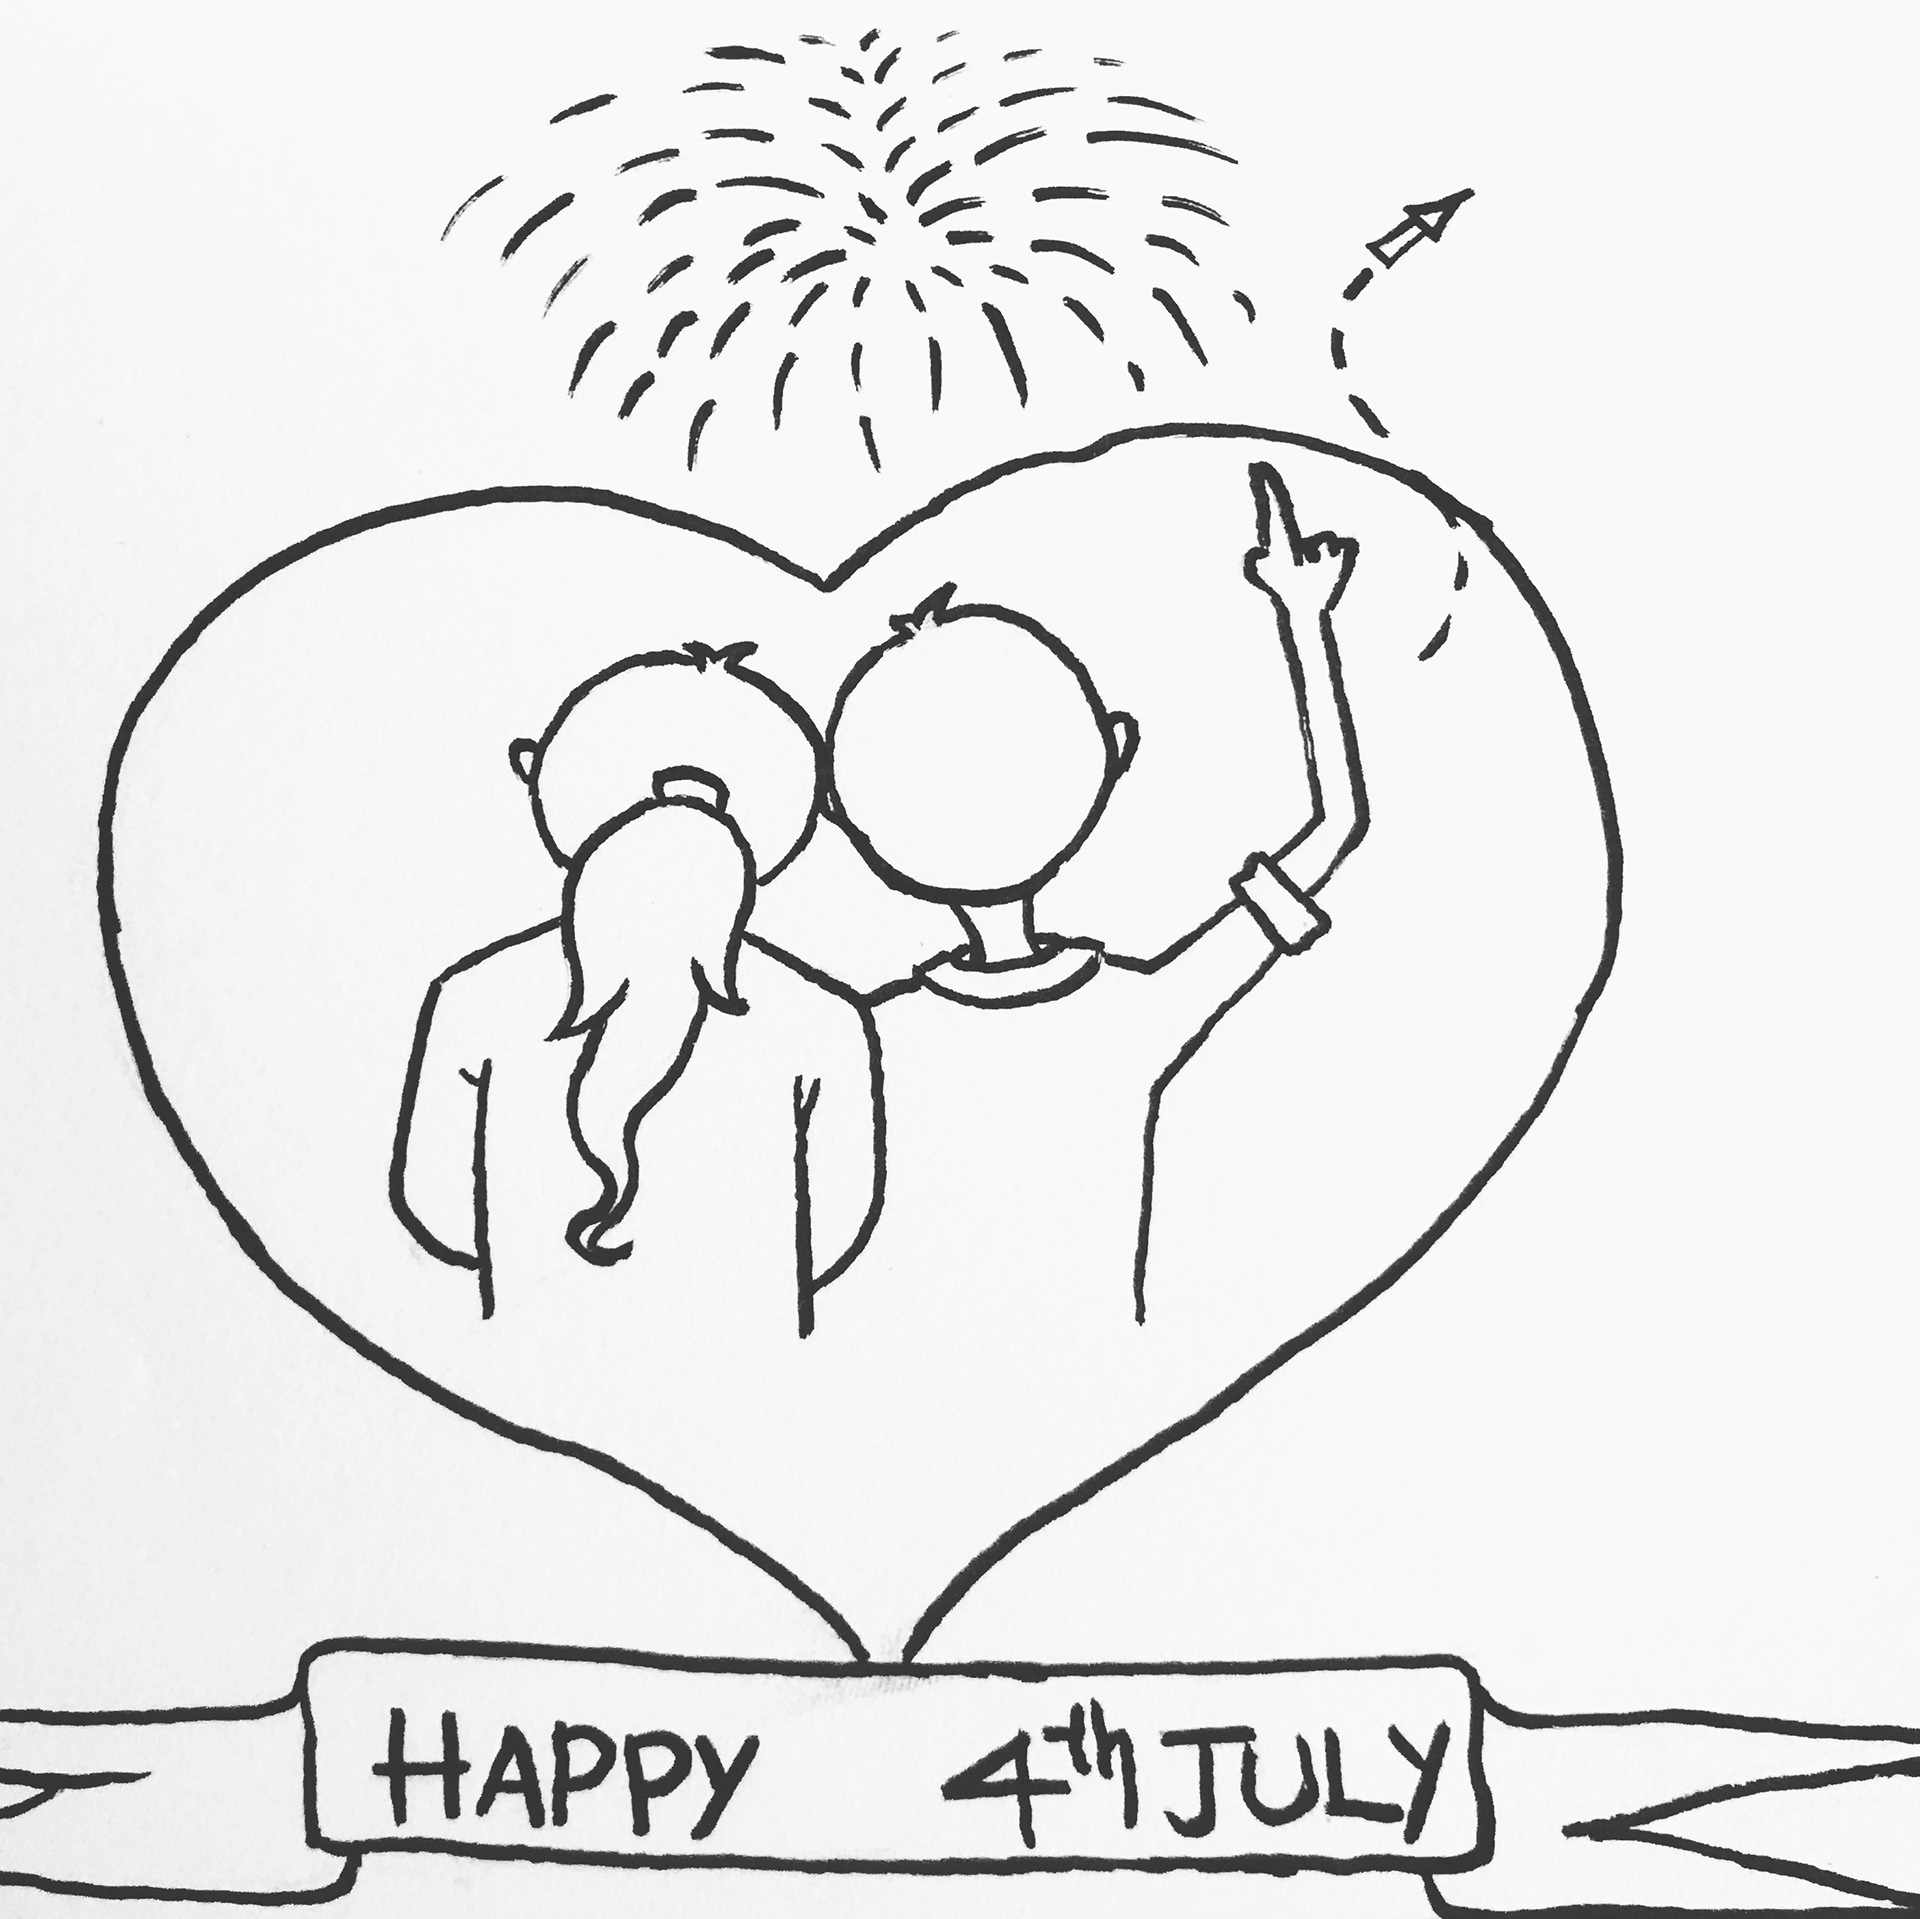 HAPPY 4th JULY